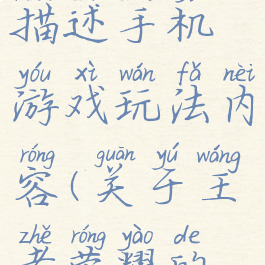 描述手机
yóu xì wán fǎ nèi
游戏玩法内
róng guān yú wáng
容(关于王
zhě róng yào de
者荣耀的